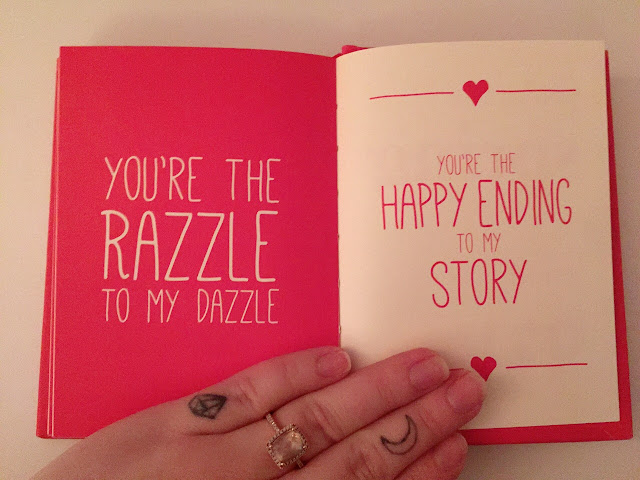 YOU'RE THE
RAZZLE
TO MY DAZZLE
YOU'RE THE
HAPPY ENDING
TO MY
STORY